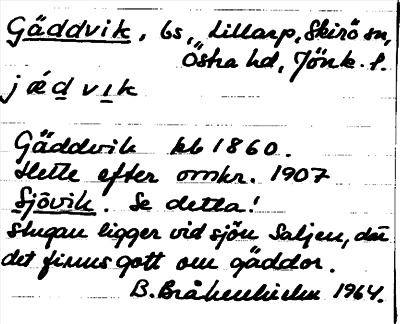 Gäddvik, bs, Lillarp, Skirö sn,
Östra hd, Jönk. l.
j ǽ d v ı k
Gäddvik kb 1860.
Hette efter omkr. 1907
Sjövik. Se detta!
Stugan ligger vid sjön Saljen, där
det finns gott om gäddor.
B. Bråkenhielm 1964.